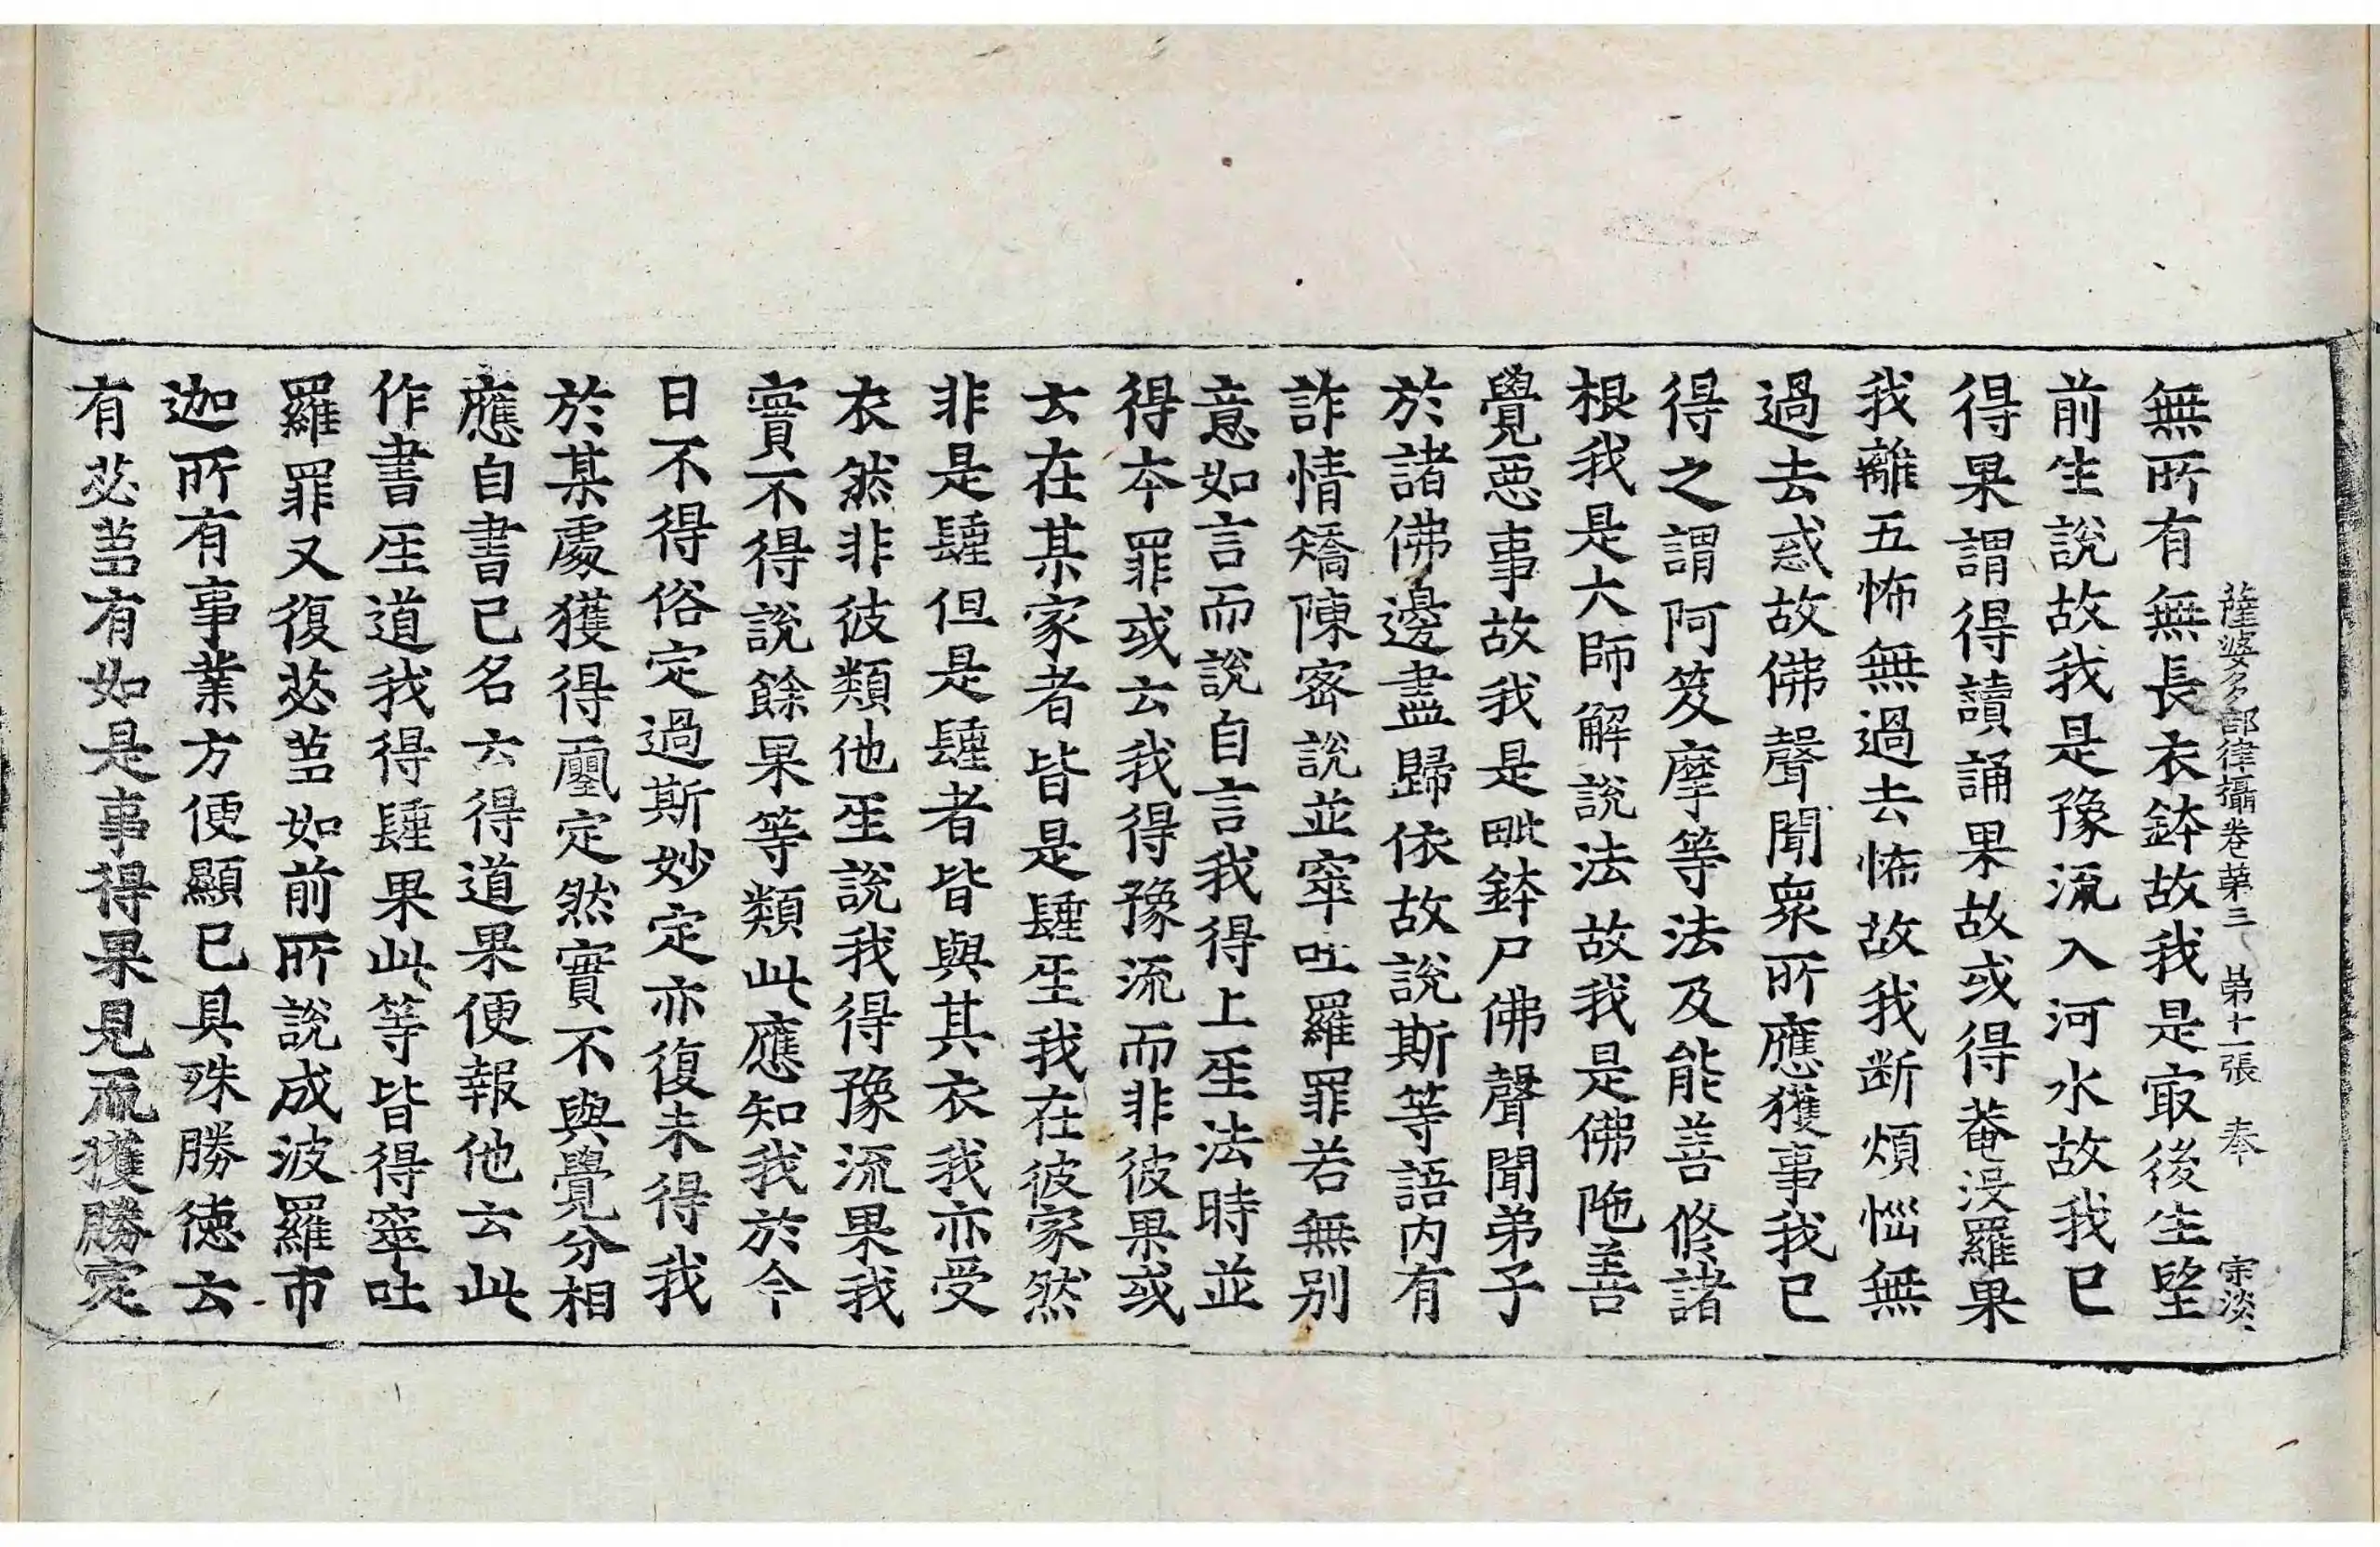 薩婆多部律攝卷第三　第十一張　奉　宗淡
無所有無長衣鉢故我是㝡後生望
前生說故我是豫流入河水故我已
得果謂得讀誦果故或得菴沒羅果
我離五怖無過去怖故我断煩惱無
過去惑故佛聲聞衆所應獲事我已
得之謂阿笈摩等法及能善修諸
根我是大師解說法故我是佛陁善
覺惡事故我是毗鉢尸佛聲聞弟子
於諸佛邊盡歸依故說斯等語內有
詐情矯陳密說並窣吐羅罪若無別
意如言而說自言我得上𤯔法時並
得夲罪或云我得豫流而非彼果或
云在某家者皆是𨲢𤯔我在彼家然
非是𨲢但是𨲢者皆與其衣我亦受
衣然非彼類他𤯔說我得豫流果我
實不得說餘果等類此應知我於今
日不得俗定過斯妙定亦復未得我
於某處獲得𡔈定然實不與覺分相
應自書己名云得道果便報他云此
作書𤯔道我得𨲢果此等皆得窣吐
羅罪又復苾蒭如前所說成波羅市
迦所有事業方便顯已具殊勝德云
有苾蒭有如是事得果見諦獲勝定